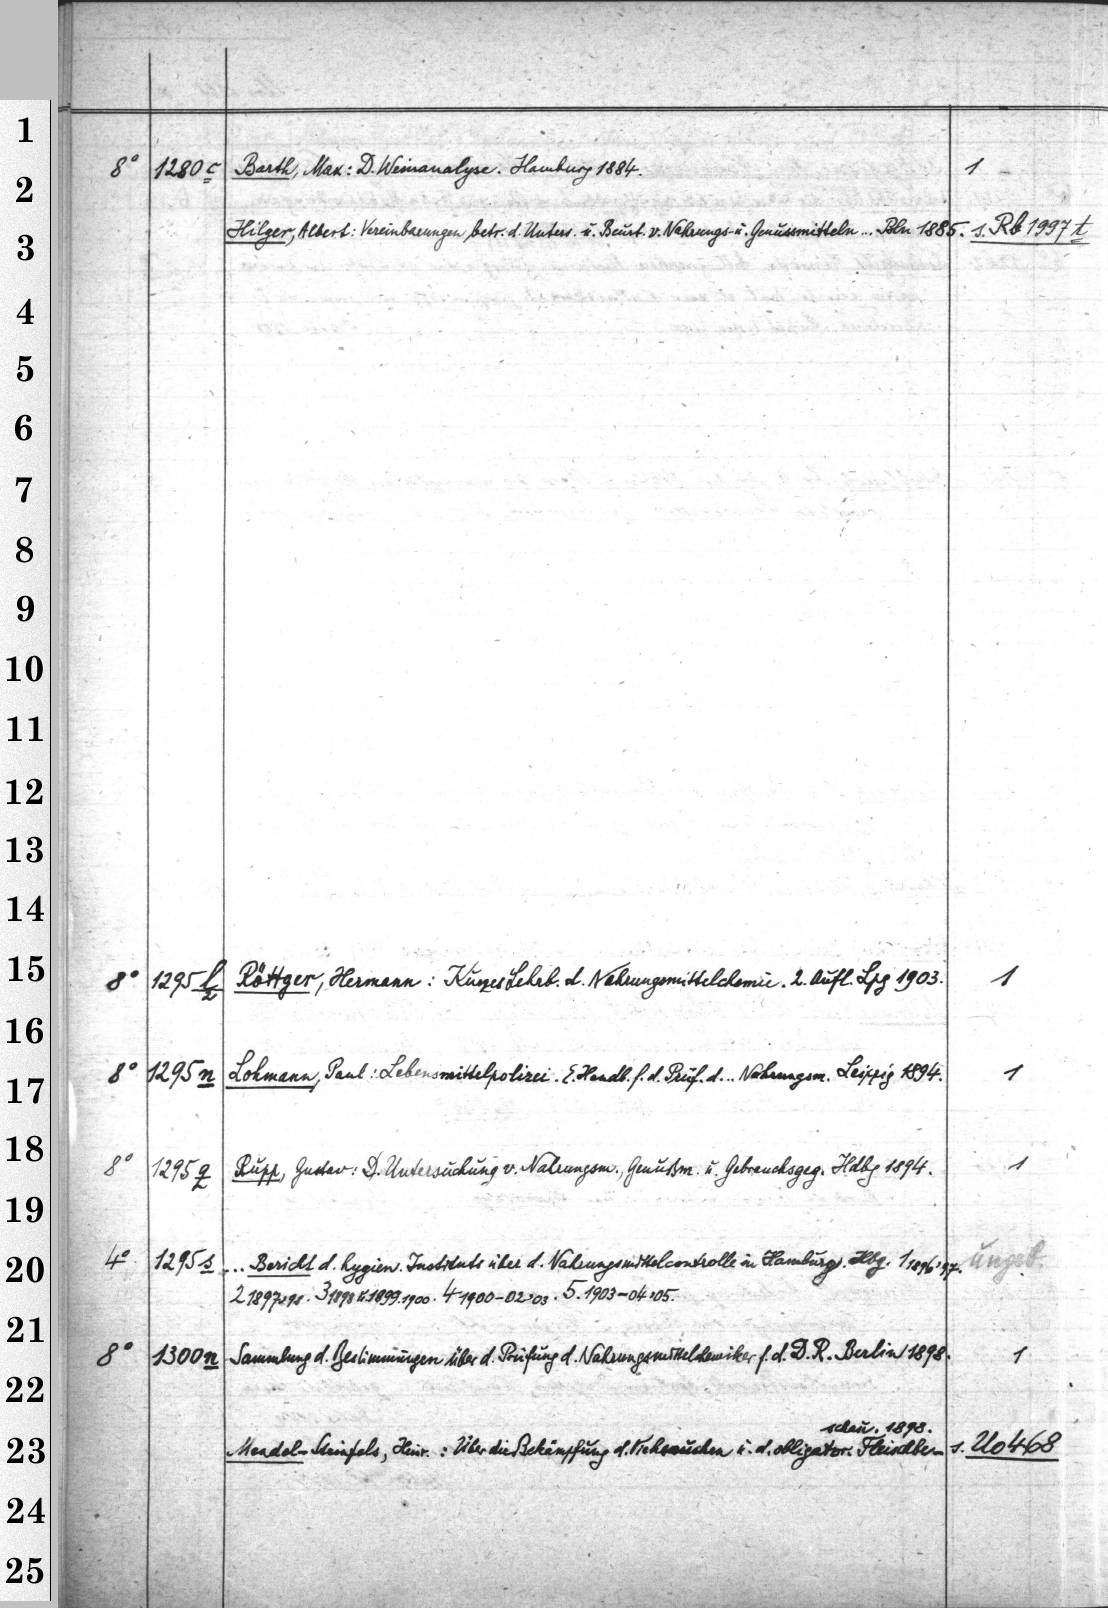 1
8° 1280c Barth, Max: D. Weinanalyse. Hamburg 1884. 1
2
3 Hilger, Albert: Vereinbarungen betr. d. Unters. u. Beurt. v. Nahrungs- u. Genussmitteln... Bln 1885. s. Rb 1997 t
4
5
6
7
8
9
10
11
12
13
14
15 8° 1295 l/2 Röttger, Hermann: Kurzes Lehrb. d. Nahrungsmittelchemie. 2. Aufl. Lpg 1903. 1
16
17 8° 1295n Lohmann, Paul: Lebensmittelpolizei. E. Handb. f. d. Prüf. d... Nahrungsm. Leipzig 1894. 1
18 8° 1295q Rupp, Gustav: D. Untersuchung v. Nahrungsm., Genußm. u. Gebrauchsgeg. Hdbg 1894. 1
19
20 4° 1295s ... Bericht d. hygien. Instituts über d. Nahrungsmittelcontrolle in Hamburg. Hbg. 1 1896.97. ungeb.
2 1897.98. 3 1898 u. 1899.1900. 4 1900-02.03. 5. 1903-04.05.
21
8° 1300n Sammlung d. Bestimmungen über d. Prüfung d. Nahrungsmittelchemiker f. d. D. R. Berlin 1898. 1
22
schau. 1898.
23 Mendel-Steinfels, Heinr.: Über die Bekämpfung d. Viehseuchen u. d. obligator. Fleischbe- s. Uo 468
24
25